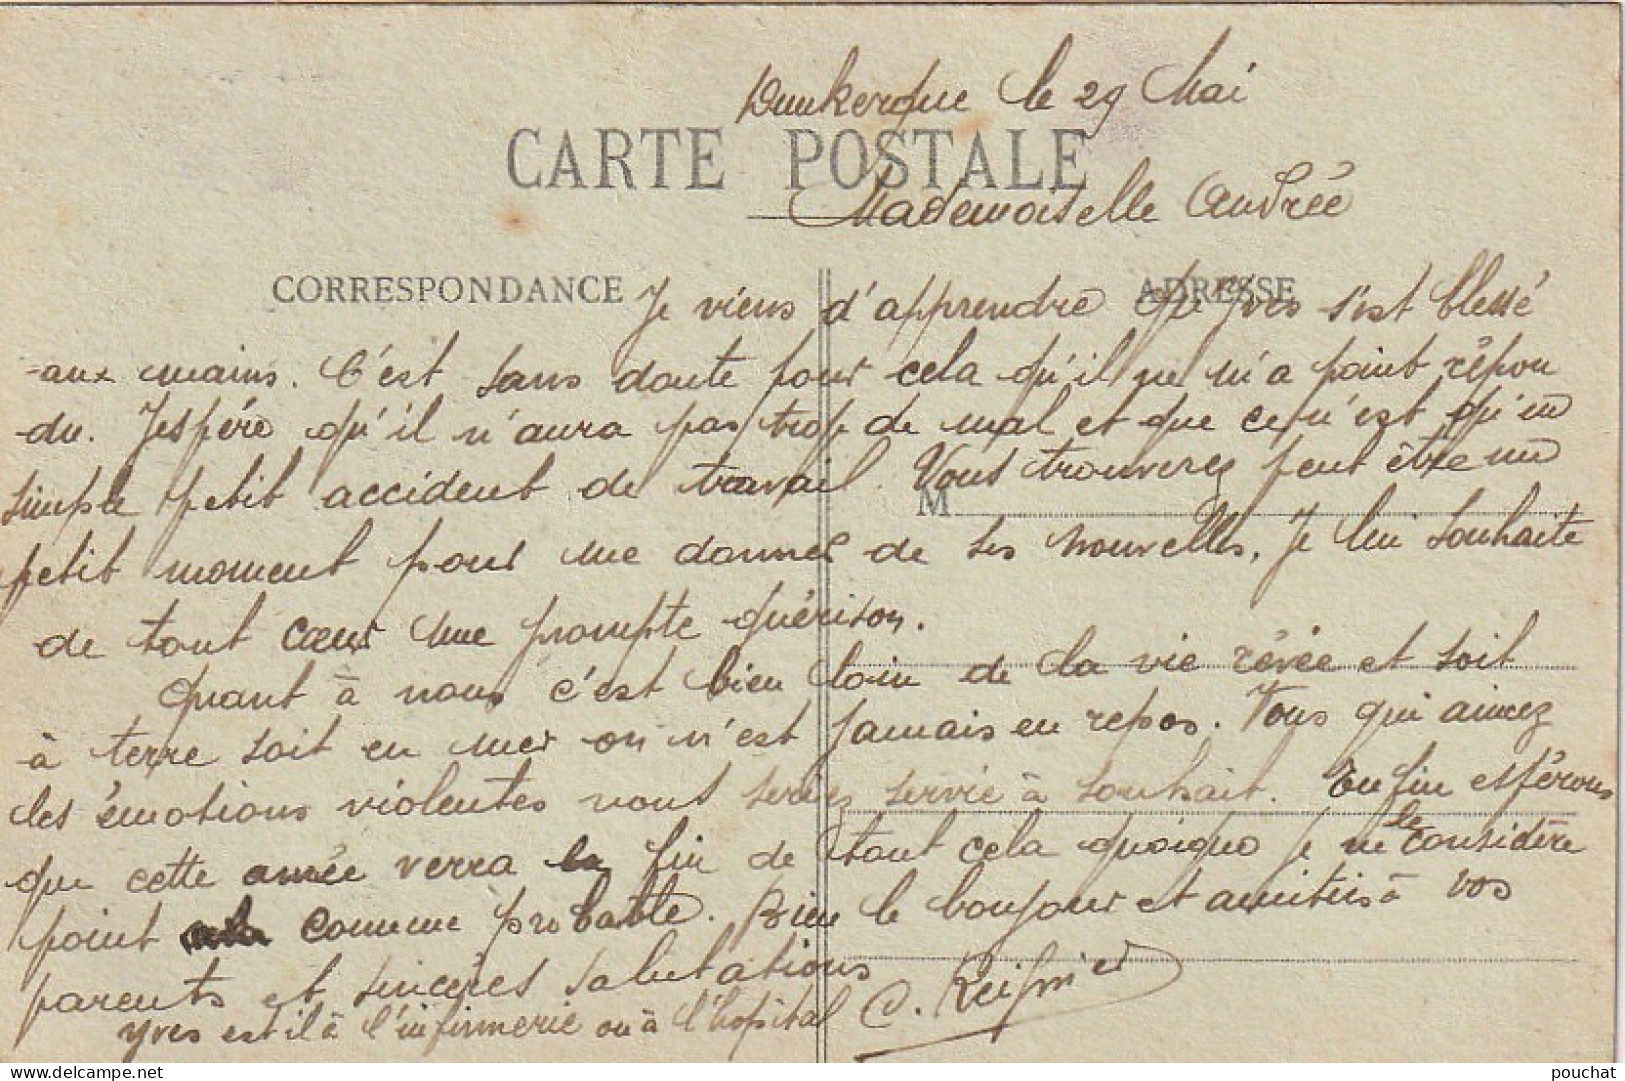 Dunkerque le 29 Mai
CARTE POSTALE
Mademoiselle Andrée
CORRESPONDANCE
ADRESSE
Je viens d'apprendre que Yves s'est blessé
aux mains. C'est sans doute pour cela qu'il ne m'a point répon
du. J'espère qu'il n'aura pas trop de mal et que ce n'est qu'un
simple petit accident de travail. Vous trouverez peut être un
M
petit moment pour me donner de ses nouvelles. Je lui souhaite
de tout cœur une prompte guérison.
Quant à nous c'est bien loin de la vie rêvée et soit
à terre soit en mer on n'est jamais en repos. Vous qui aimez
les émotions violentes vous seriez servie à souhait. Enfin espérons
que cette année verra la fin de tout cela quoique je ne le considère
point comme probable. Bien le bonjour et amitiés à vos
parents et sincères salutations
C. Reignier
Yves est il à l'infirmerie ou à l'hopital
pouchat